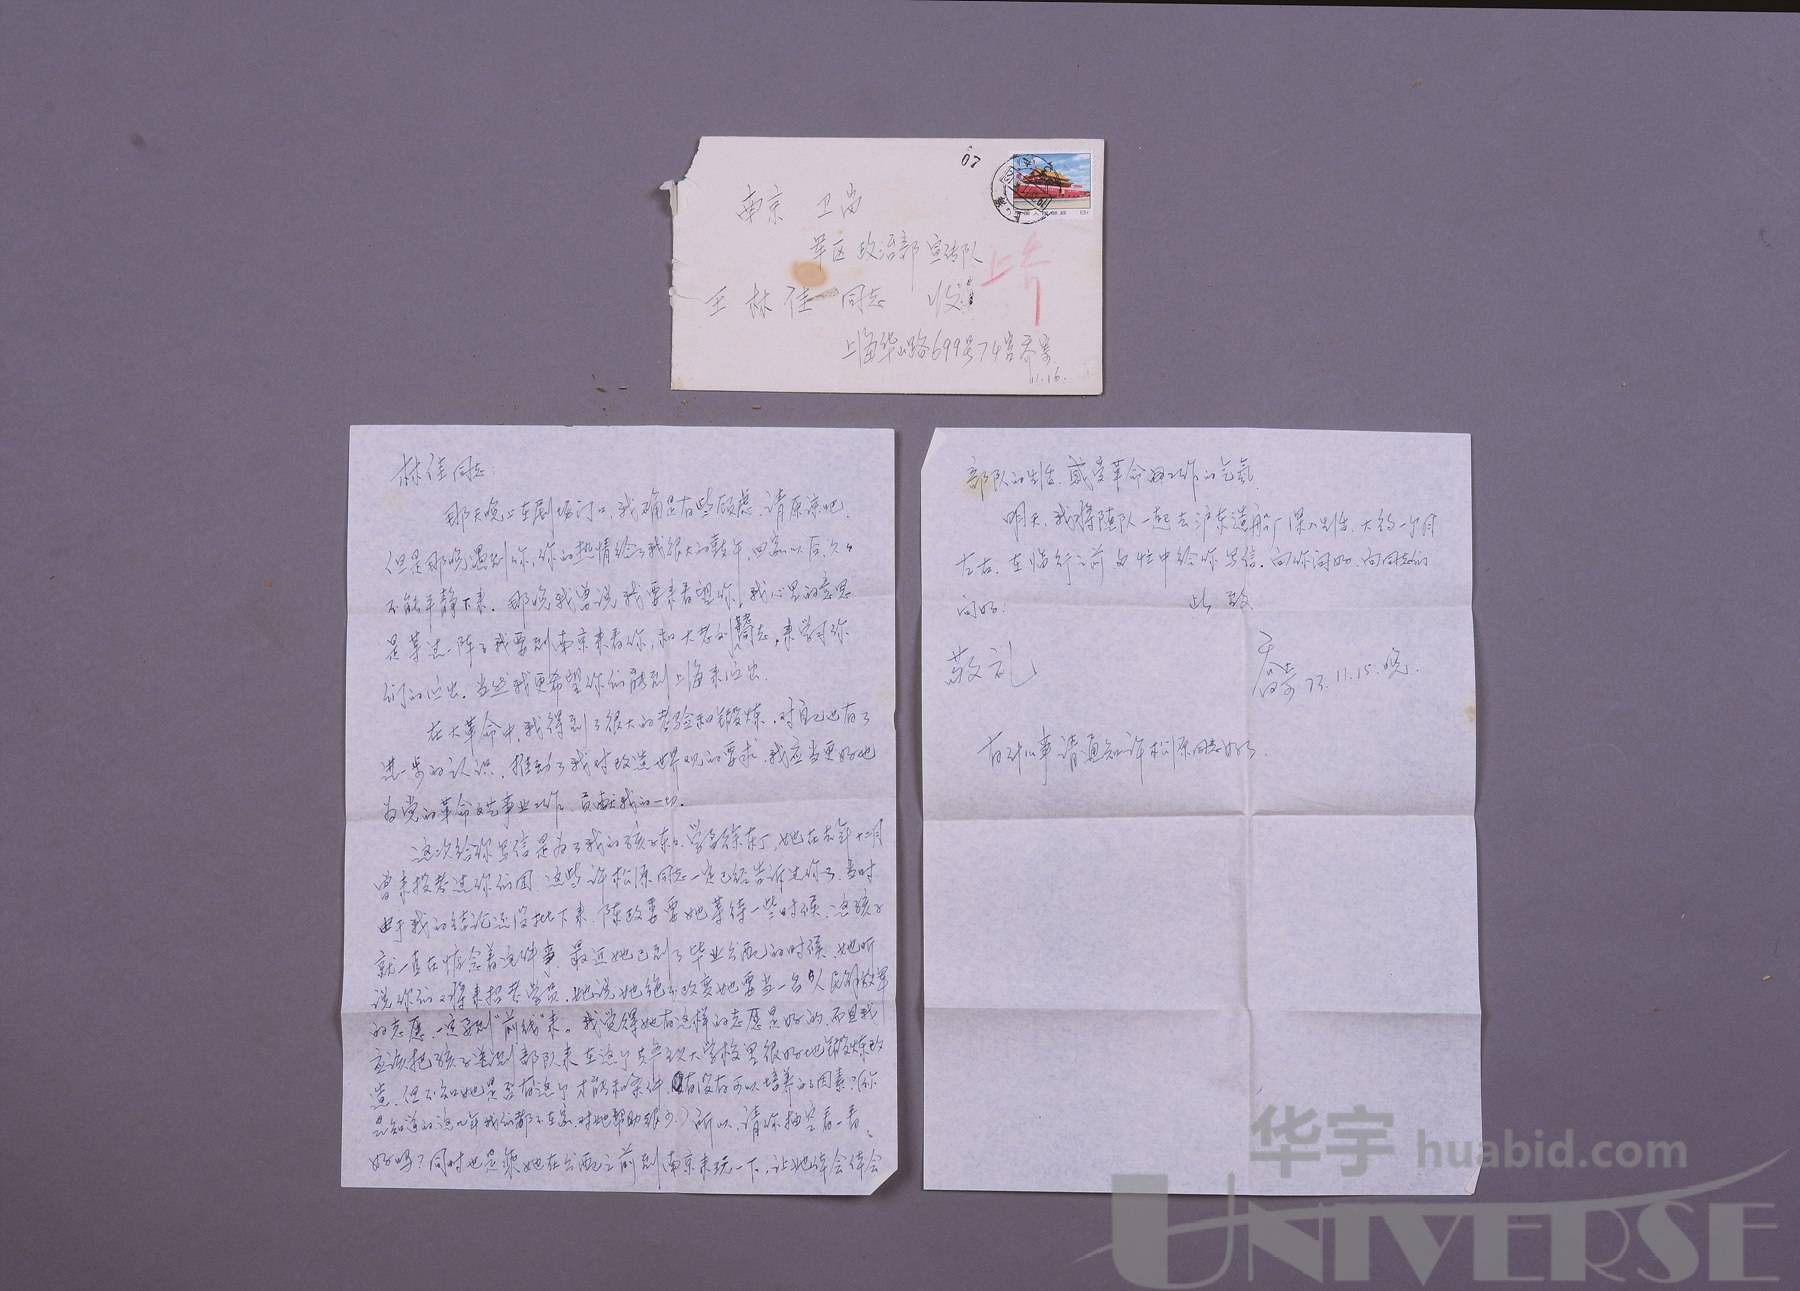 07
南京 卫岗
军区政治部宣传队
王林佳 同志 收
上海华山路699号74室乔寄
11.16.
林佳同志:
那天晚上在剧场门口,我确是有些顾虑,请原凉吧。
但是那晚遇到你,你的热情给了我很大的鼓午,回家以后,久久
不能平静下来。那晚我曾说我要来看望你,我心里的意思
是等过一阵子我要到南京来看你,和大老刘同志,来学习你
们的演出。当然我更希望你们能到上海来演出。
在大革命中,我得到了很大的考验和锻炼,对自己也有了
进一步的认识,推动了我对改造世界观的要求,我应当更好地
为党的革命文艺事业工作,贡献我的一切。
这次给你写信是为了我的孩子东东,学名徐东丁,她在去年十二月
曾来投考过你们团,这些许松原同志一定已经告诉过你了,当时
由于我的结论还没批下来,陈政委要她等待一些时候,这孩子
就一直在惦念着这件事,最近她已到了毕业分配的时候,她听
说你们又将来招考学员,她说她绝不改变她要当一名人民解放军
的志愿,一定要到“前线”来。我觉得她有这样的志愿是好的,而且我
应该把孩子送到部队来在这个毛泽东思大学校里很好地锻炼改
造,但不知她是否有这个才能和条件,有没有可以培养的因素?(你
是知道的这几年我们都不在家,对她帮助很少)所以,请你抽空看一看,
好吗?同时也是乘她在分配之前到南京来玩一下,让她体会体会
部队的生活,感受革命的工作的气氛。
明天,我将随队一起去沪东造船厂深入生活,大约一个月
左右,在临行之前匆忙中给你写信。向你问好,向同志们
问好。 此致
敬礼
乔奇 73.11.15.晚.
有什么事请通知许松原同志好了。
华宇 huabid.com
UNIVERSE